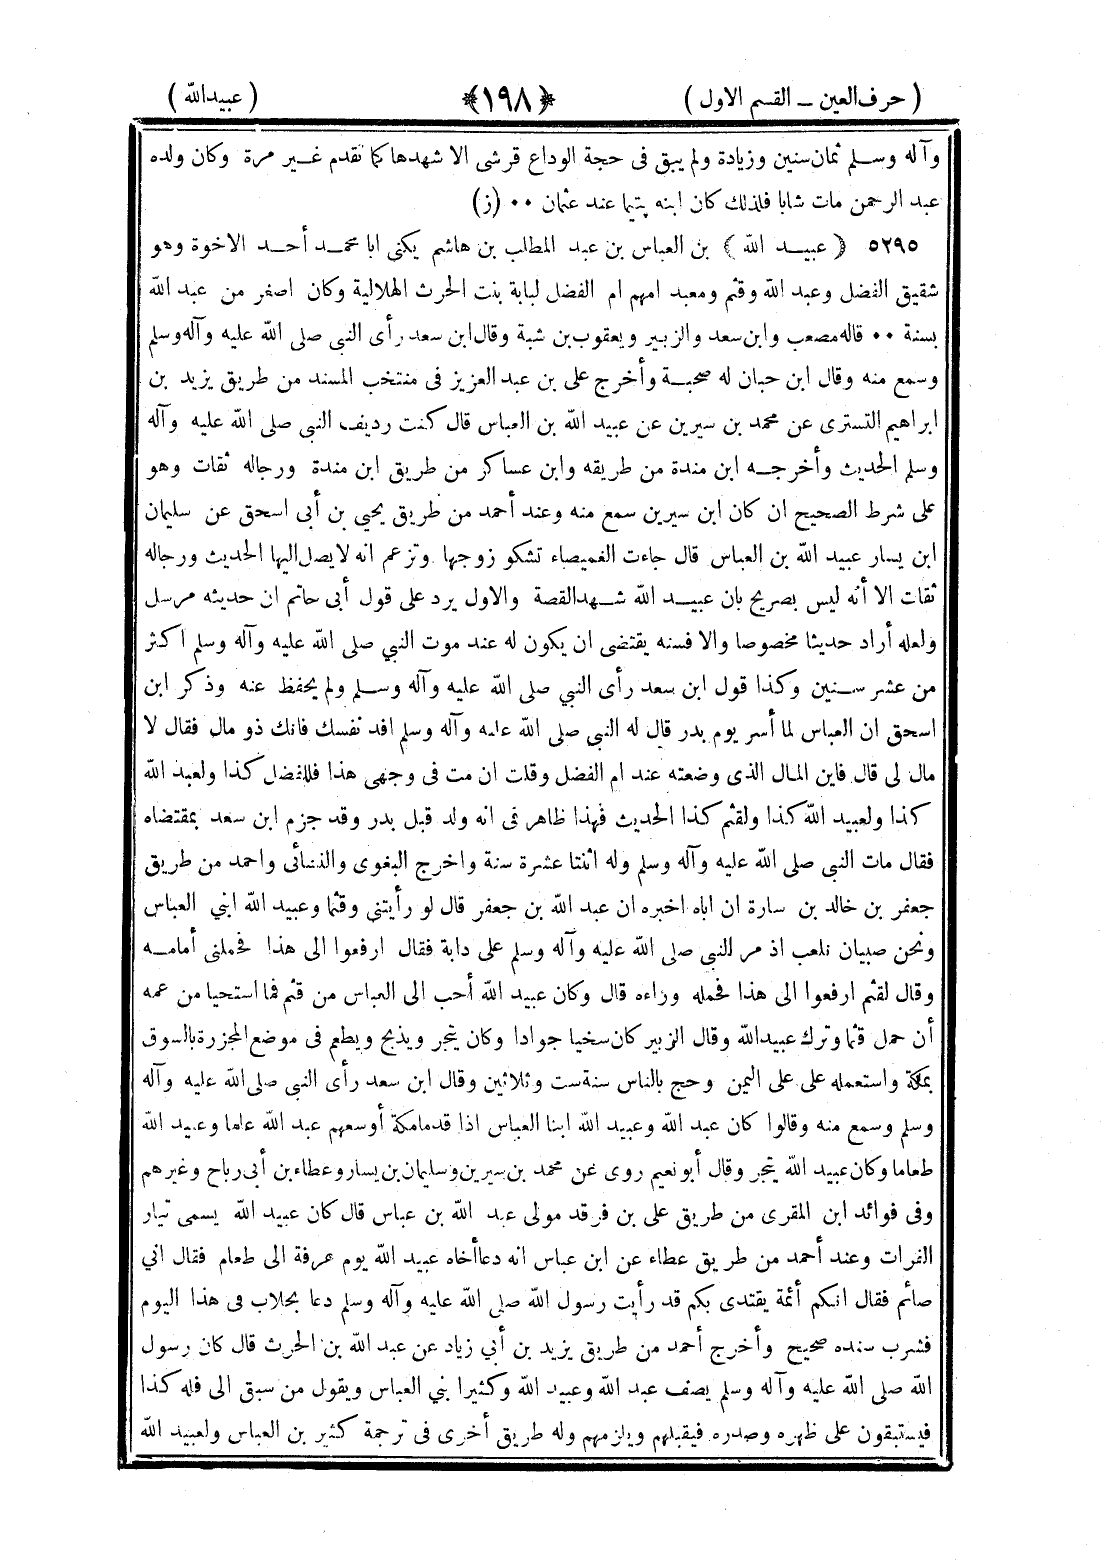 ( حرف العين ــ القسم الاول )
﴿١٩٨﴾
( عبيدالله )
وآله وسلم ثمان سنين وزيادة ولم يبق فى حجة الوداع قرشى الا شهدها كما تقدم غير مرة وكان ولده
عبد الرحمن مات شابا فلذلك كان ابنه يتيما عند عثمان ٠٠ (ز)
٥٢٩٥ ﴿ عبيد الله ﴾ بن العباس بن عبد المطلب بن هاشم يكنى ابا محمد أحد الاخوة وهو
شقيق الفضل وعبد الله وقثم ومعبد امهم ام الفضل لبابة بنت الحرث الهلالية وكان اصغر من عبد الله
بسنة ٠٠ قاله مصعب وابن سعد والزبير ويعقوب بن شبة وقال ابن سعد رأى النبى صلى الله عليه وآله وسلم
وسمع منه وقال ابن حبان له صحبة وأخرج على بن عبد العزيز فى منتخب المسند من طريق يزيد بن
ابراهيم التسترى عن محمد بن سيرين عن عبيد الله بن العباس قال كنت رديف النبى صلى الله عليه وآله
وسلم الحديث وأخرجه ابن مندة من طريقه وابن عساكر من طريق ابن مندة ورجاله ثقات وهو
على شرط الصحيح ان كان ابن سيرين سمع منه وعند أحمد من طريق يحيى بن أبى اسحق عن سليمان
ابن يسار عبيد الله بن العباس قال جاءت الغميصاء تشكو زوجها وتزعم انه لا يصل اليها الحديث ورجاله
ثقات الا أنه ليس بصريح بان عبيد الله شهد القصة والاول يرد على قول أبى حاتم ان حديثه مرسل
ولعله أراد حديثا مخصوصا والا فسنه يقتضى ان يكون له عند موت النبي صلى الله عليه وآله وسلم اكثر
من عشر سنين وكذا قول ابن سعد رأى النبي صلى الله عليه وآله وسلم ولم يحفظ عنه وذكر ابن
اسحق ان العباس لما أسر يوم بدر قال له النبى صلى الله عليه وآله وسلم افد نفسك فانك ذو مال فقال لا
مال لى قال فاين المال الذى وضعته عند ام الفضل وقلت ان مت فى وجهى هذا فللفضل كذا ولعبد الله
كذا ولعبيد الله كذا ولقثم كذا الحديث فهذا ظاهر فى انه ولد قبل بدر وقد جزم ابن سعد بمقتضاه
فقال مات النبى صلى الله عليه وآله وسلم وله اثنتا عشرة سنة واخرج البغوى والنسائى واحمد من طريق
جعفر بن خالد بن سارة ان اباه اخبره ان عبد الله بن جعفر قال لو رأيتنى وقثما وعبيد الله ابني العباس
ونحن صبيان نلعب اذ مر النبى صلى الله عليه وآله وسلم على دابة فقال ارفعوا الى هذا فحملنى أمامه
وقال لقثم ارفعوا الى هذا فحمله وراءه قال وكان عبيد الله أحب الى العباس من قثم فما استحيا من عمه
أن حمل قثما وترك عبيدالله وقال الزبير كان سخيا جوادا وكان يتجر ويذبح ويطعم فى موضع المجزرة بالسوق
بمكة واستعمله على على اليمن وحج بالناس سنة ست وثلاثين وقال ابن سعد رأى النبى صلى الله عليه وآله
وسلم وسمع منه وقالوا كان عبد الله وعبيد الله ابنا العباس اذا قدما مكة أوسعهم عبد الله علما وعبيد الله
طعاما وكان عبيد الله يتجر وقال أبو نعيم روى عن محمد بن سيرين وسليمان بن يسار وعطاء بن أبى رباح وغيرهم
وفى فوائد ابن المقرى من طريق على بن فرقد مولى عبد الله بن عباس قال كان عبيد الله يسمى تيار
الفرات وعند أحمد من طريق عطاء عن ابن عباس انه دعا أخاه عبيد الله يوم عرفة الى طعام فقال اني
صائم فقال انكم أئمة يقتدى بكم قد رأيت رسول الله صلى الله عليه وآله وسلم دعا بحلاب فى هذا اليوم
فشرب سنده صحيح وأخرج أحمد من طريق يزيد بن أبي زياد عن عبد الله بن الحرث قال كان رسول
الله صلى الله عليه وآله وسلم يصف عبد الله وعبيد الله وكثيرا بني العباس ويقول من سبق الى فله كذا
فيستبقون على ظهره وصدره فيقبلهم ويلزمهم وله طريق أخرى فى ترجمة كثير بن العباس ولعبيد الله